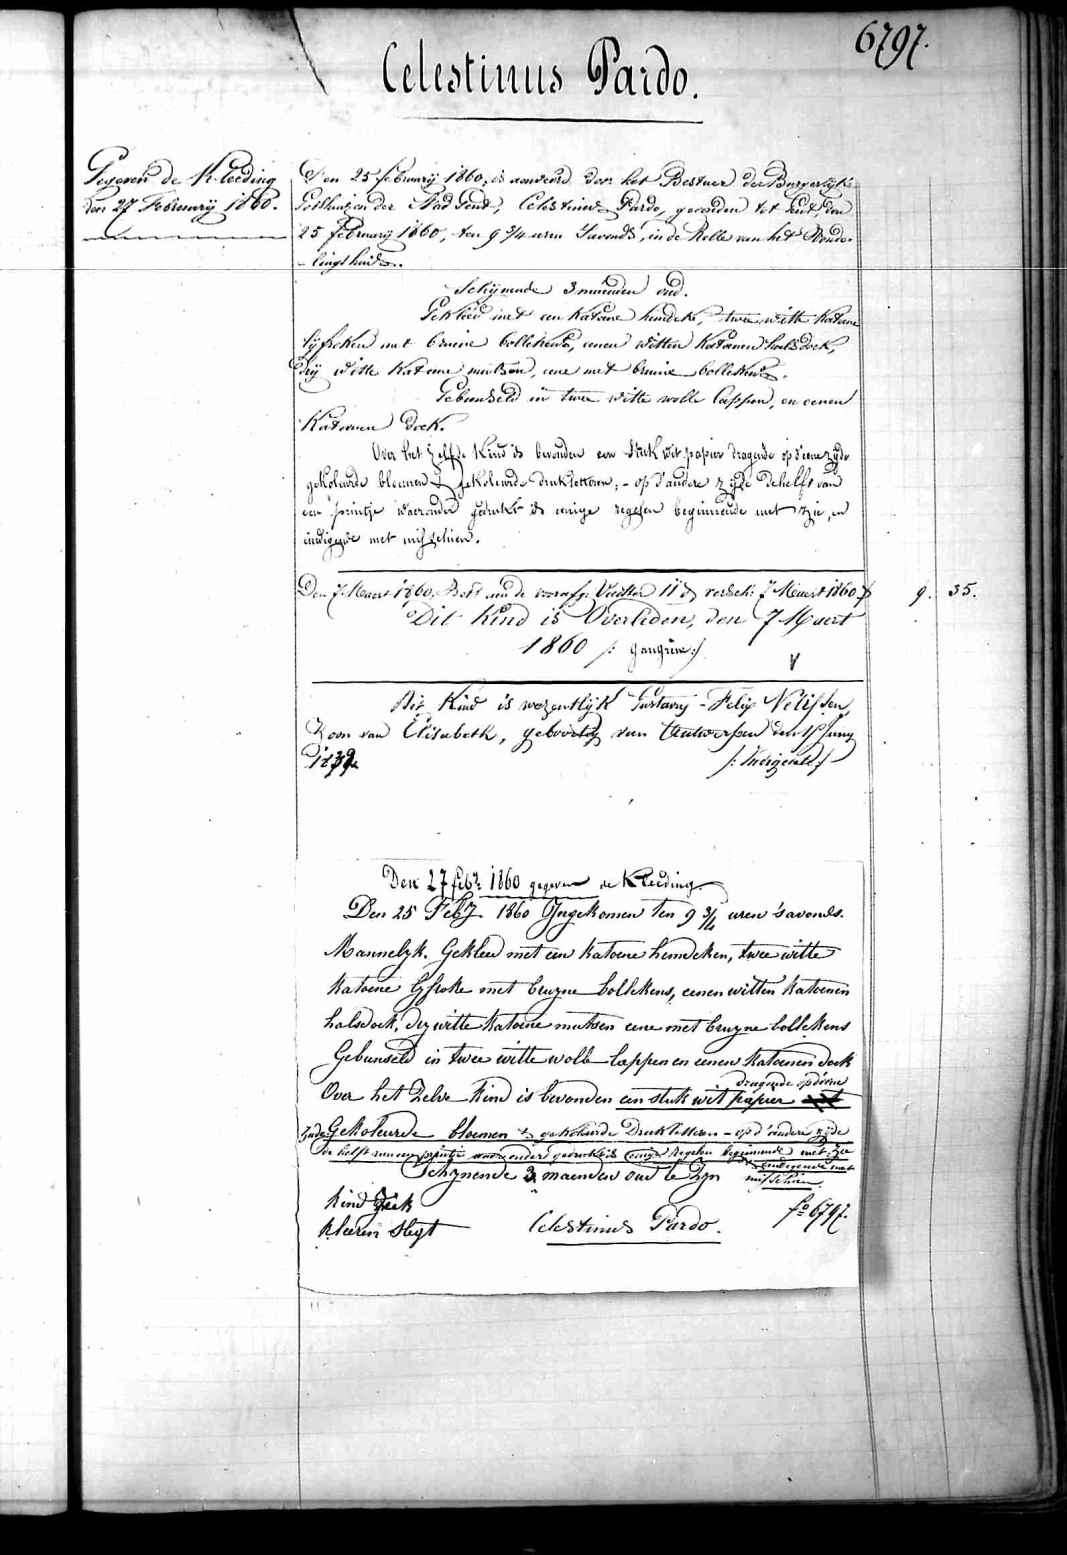 6797.
Celestinus Pardo.
Gegeven de Kleeding
den 27 Februarij 1860.
Den 25 februarij 1860, is aenveird door het Bestuer der Burgerlijke
Godshuizen der Stad Gent, Celestinus Pardo, gevonden tot Gent, den
25 februarij 1860, ten 9 3/4 uren 's avonds, in de Rolle van het Vonde-
lingshuis.
Schijnende 3 maenden oud.
Gekleed met een katoene hemdeke, twee witte katoene
lijfroken met bruine bollekens, eenen witten katoenen halsdoek,
drij witte katoene mutsen, eene met bruine bollekens.
Gebunseld in twee witte wolle lappen, en eenen
katoenen doek.
Over het zelfde kind is bevonden een stuk wit papier dragende op d'eene zijde
gekoleurde bloemen & gekoleurde drukletteren; - op d'andere zijde de helft van
een printje waeronder gedrukt is eenige regelen beginnende met zie, en
eindigende met misschien.
Den 7 Maert 1860. Best. aen de Voedster 11 d. versch. 7 Maert 1860 9. 35.
Dit kind is Overleden, den 7 Maert
1860 /: gangrène :/
Dit Kind is wezentlijk Gustavus-Felix Nelissen,
Zoon van Elisabeth, geboortig van Antwerpen den 11 Juny
Den 27 feb.r 1860 gegeven de Kleeding
Den 25 Feb.y 1860 Ingekomen ten 9 3/4 uren 's avonds.
Mannelyk. Gekleed met een katoene hemdeken, twee witte
katoene lyfroke met bruyne bollekens, eenen witten katoenen
halsdoek, dry witte katoene mutsen eene met bruyne bollekens
Gebunseld in twee witte wolle lappen en eenen katoenen doek
dragende op d'eene
Over het zelve kind is bevonden een stuk wit papier
zyde Gekoleurde bloemen & gekoleurde Drukletteren - op d'andere zyde
de helft van een printje waer onder gedrukt is eenige regelen beginnende met zie
eindigende met
Schynende 3 maenden oud te zyn misschien
kind Ziek
kleeren Slegt Celestinus Pardo. f.o 6797.